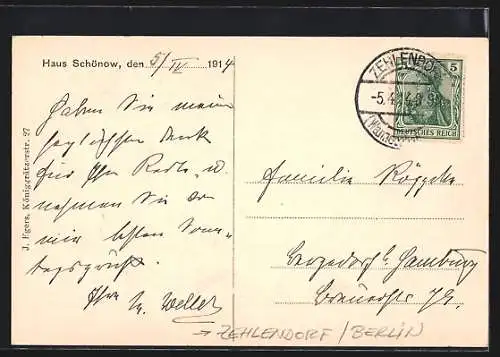 Haus Schönow, den 5/IV 1914
Haben Sie meinen
herzlichsten Dank
für Ihre Karte u.
nehmen Sie von
mir besten Sonn-
tagsgruß.
Ihre
J. Egers, Königgrätzerstr. 27
ZEHLENDORF
-5.4.14.8-9
5
DEUTSCHES REICH
Familie
Bergedorf b. Hamburg
→ ZEHLENDORF / BERLIN